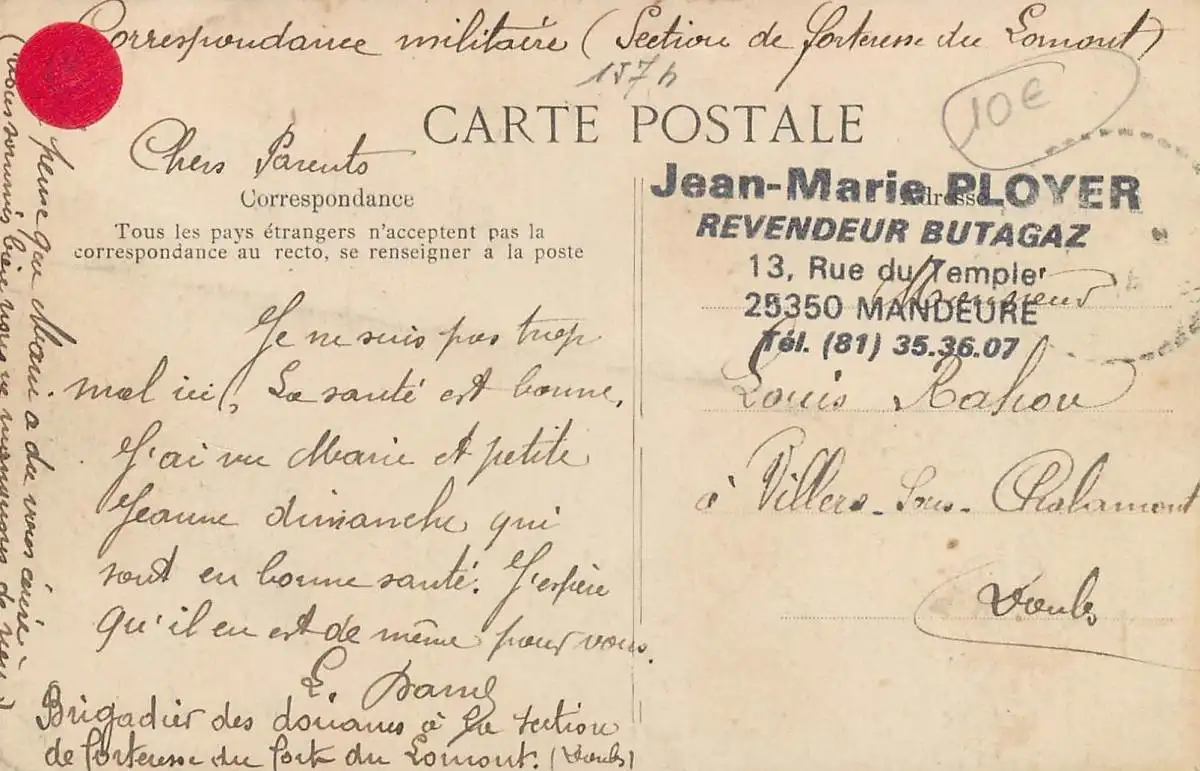 Correspondance militaire (Section de forteresse du Lomont)
157 h
10€
CARTE POSTALE
Chers Parents
Correspondance
Tous les pays étrangers n'acceptent pas la
correspondance au recto, se renseigner à la poste
Je ne suis pas trop
mal ici, La santé est bonne.
J'ai vu Marie et petite
Jeanne dimanche qui
sont en bonne santé. J'espère
qu'il en est de même pour vous.
Brigadier des douanes à la section
de forteresse du fort du Lomont. (Doubs)
pense que Marie a du vous écrire.
(nous sommes bien nous ne manquons de rien)
Jean-Marie PLOYER
Adresse
REVENDEUR BUTAGAZ
13, Rue du Temple
25350 MANDEURE
Tél. (81) 35.36.07
Monsieur
Louis
à Villers-Sous-Chalamont
Doubs